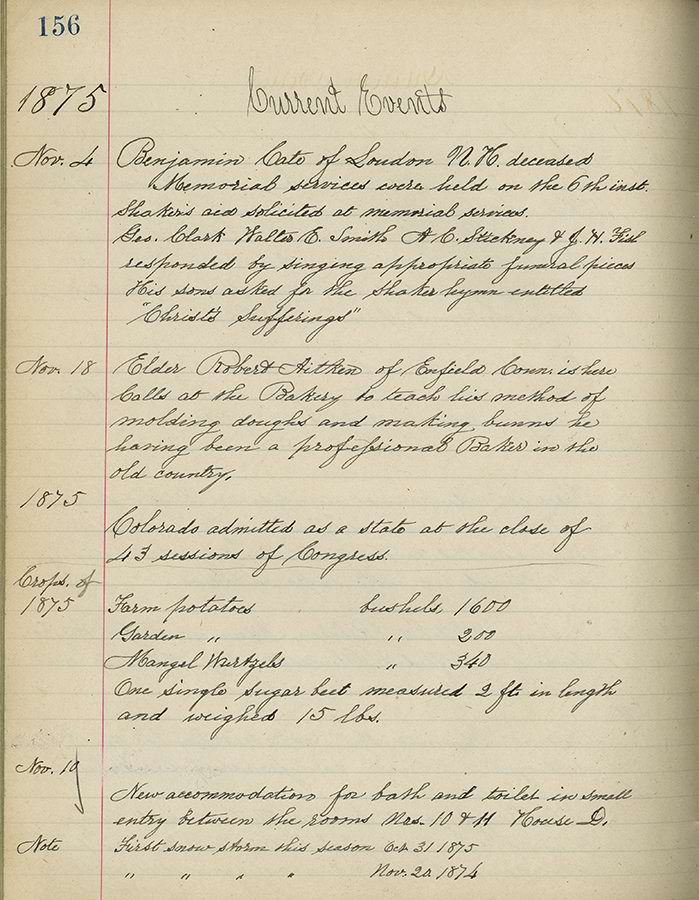 156
1875 Current Events
Nov. 4 Benjamin Cate of Loudon N. H. deceased
Memorial services were held on the 6th inst.
Shakers aid solicited at memorial services.
Geo. Clark Walter E. Smith A. C. Stickney & J. H. Fish
responded by singing appropriate funeral pieces
His sons asked for the Shaker hymn entitled
"Christ's Sufferings"
Nov. 18 Elder Robert Aitken of Enfield Conn. is here
Calls at the Bakery to teach his method of
molding doughs and making bunns he
having been a professional Baker in the
old country.
1875
Colorado admitted as a state at the close of
43 sessions of Congress.
Crops. of
1875 Farm potatoes bushels, 1600
Garden " " 200
Mangel Wurtzels " 340
One single sugar beet measured 2 ft. in length
and weighed 15 lbs.
Nov. 19
New accommodation for bath and toilet in small
entry between the rooms Nrs. 10 & 11 House D.
Note First snow storm this season Oct. 31 1875
" " " " Nov. 20 1874